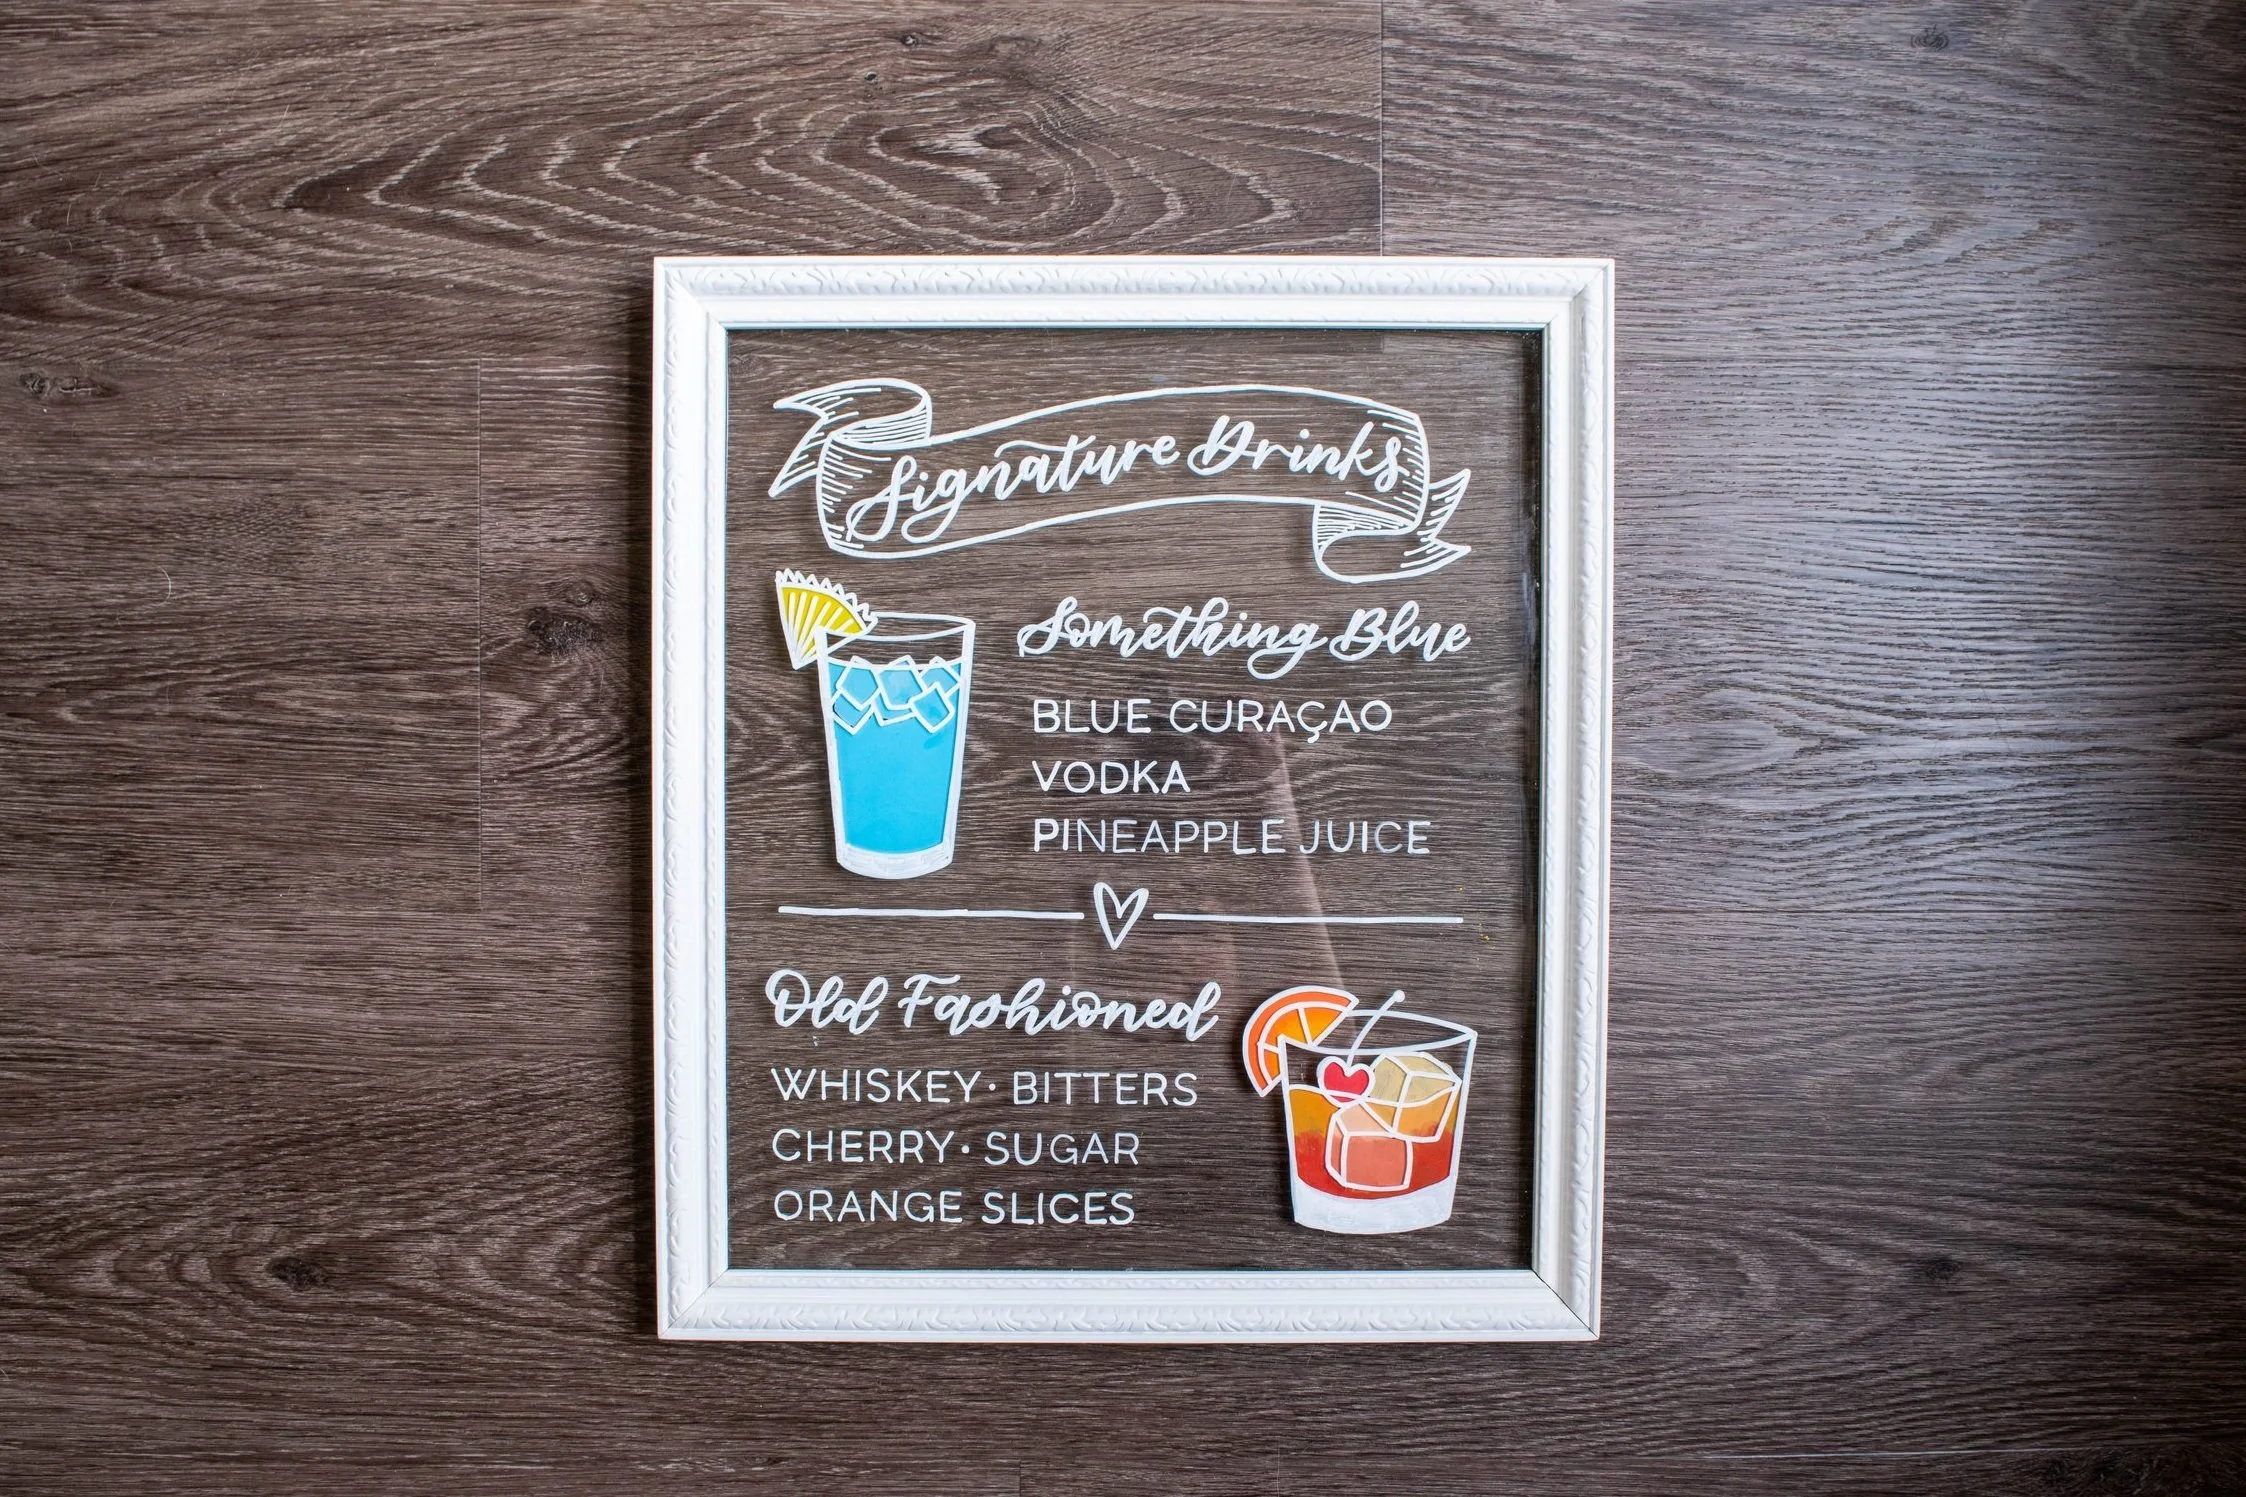 Signature Drinks
Something Blue
BLUE CURAÇAO
VODKA
PINEAPPLE JUICE
Old Fashioned
WHISKEY • BITTERS
CHERRY • SUGAR
ORANGE SLICES